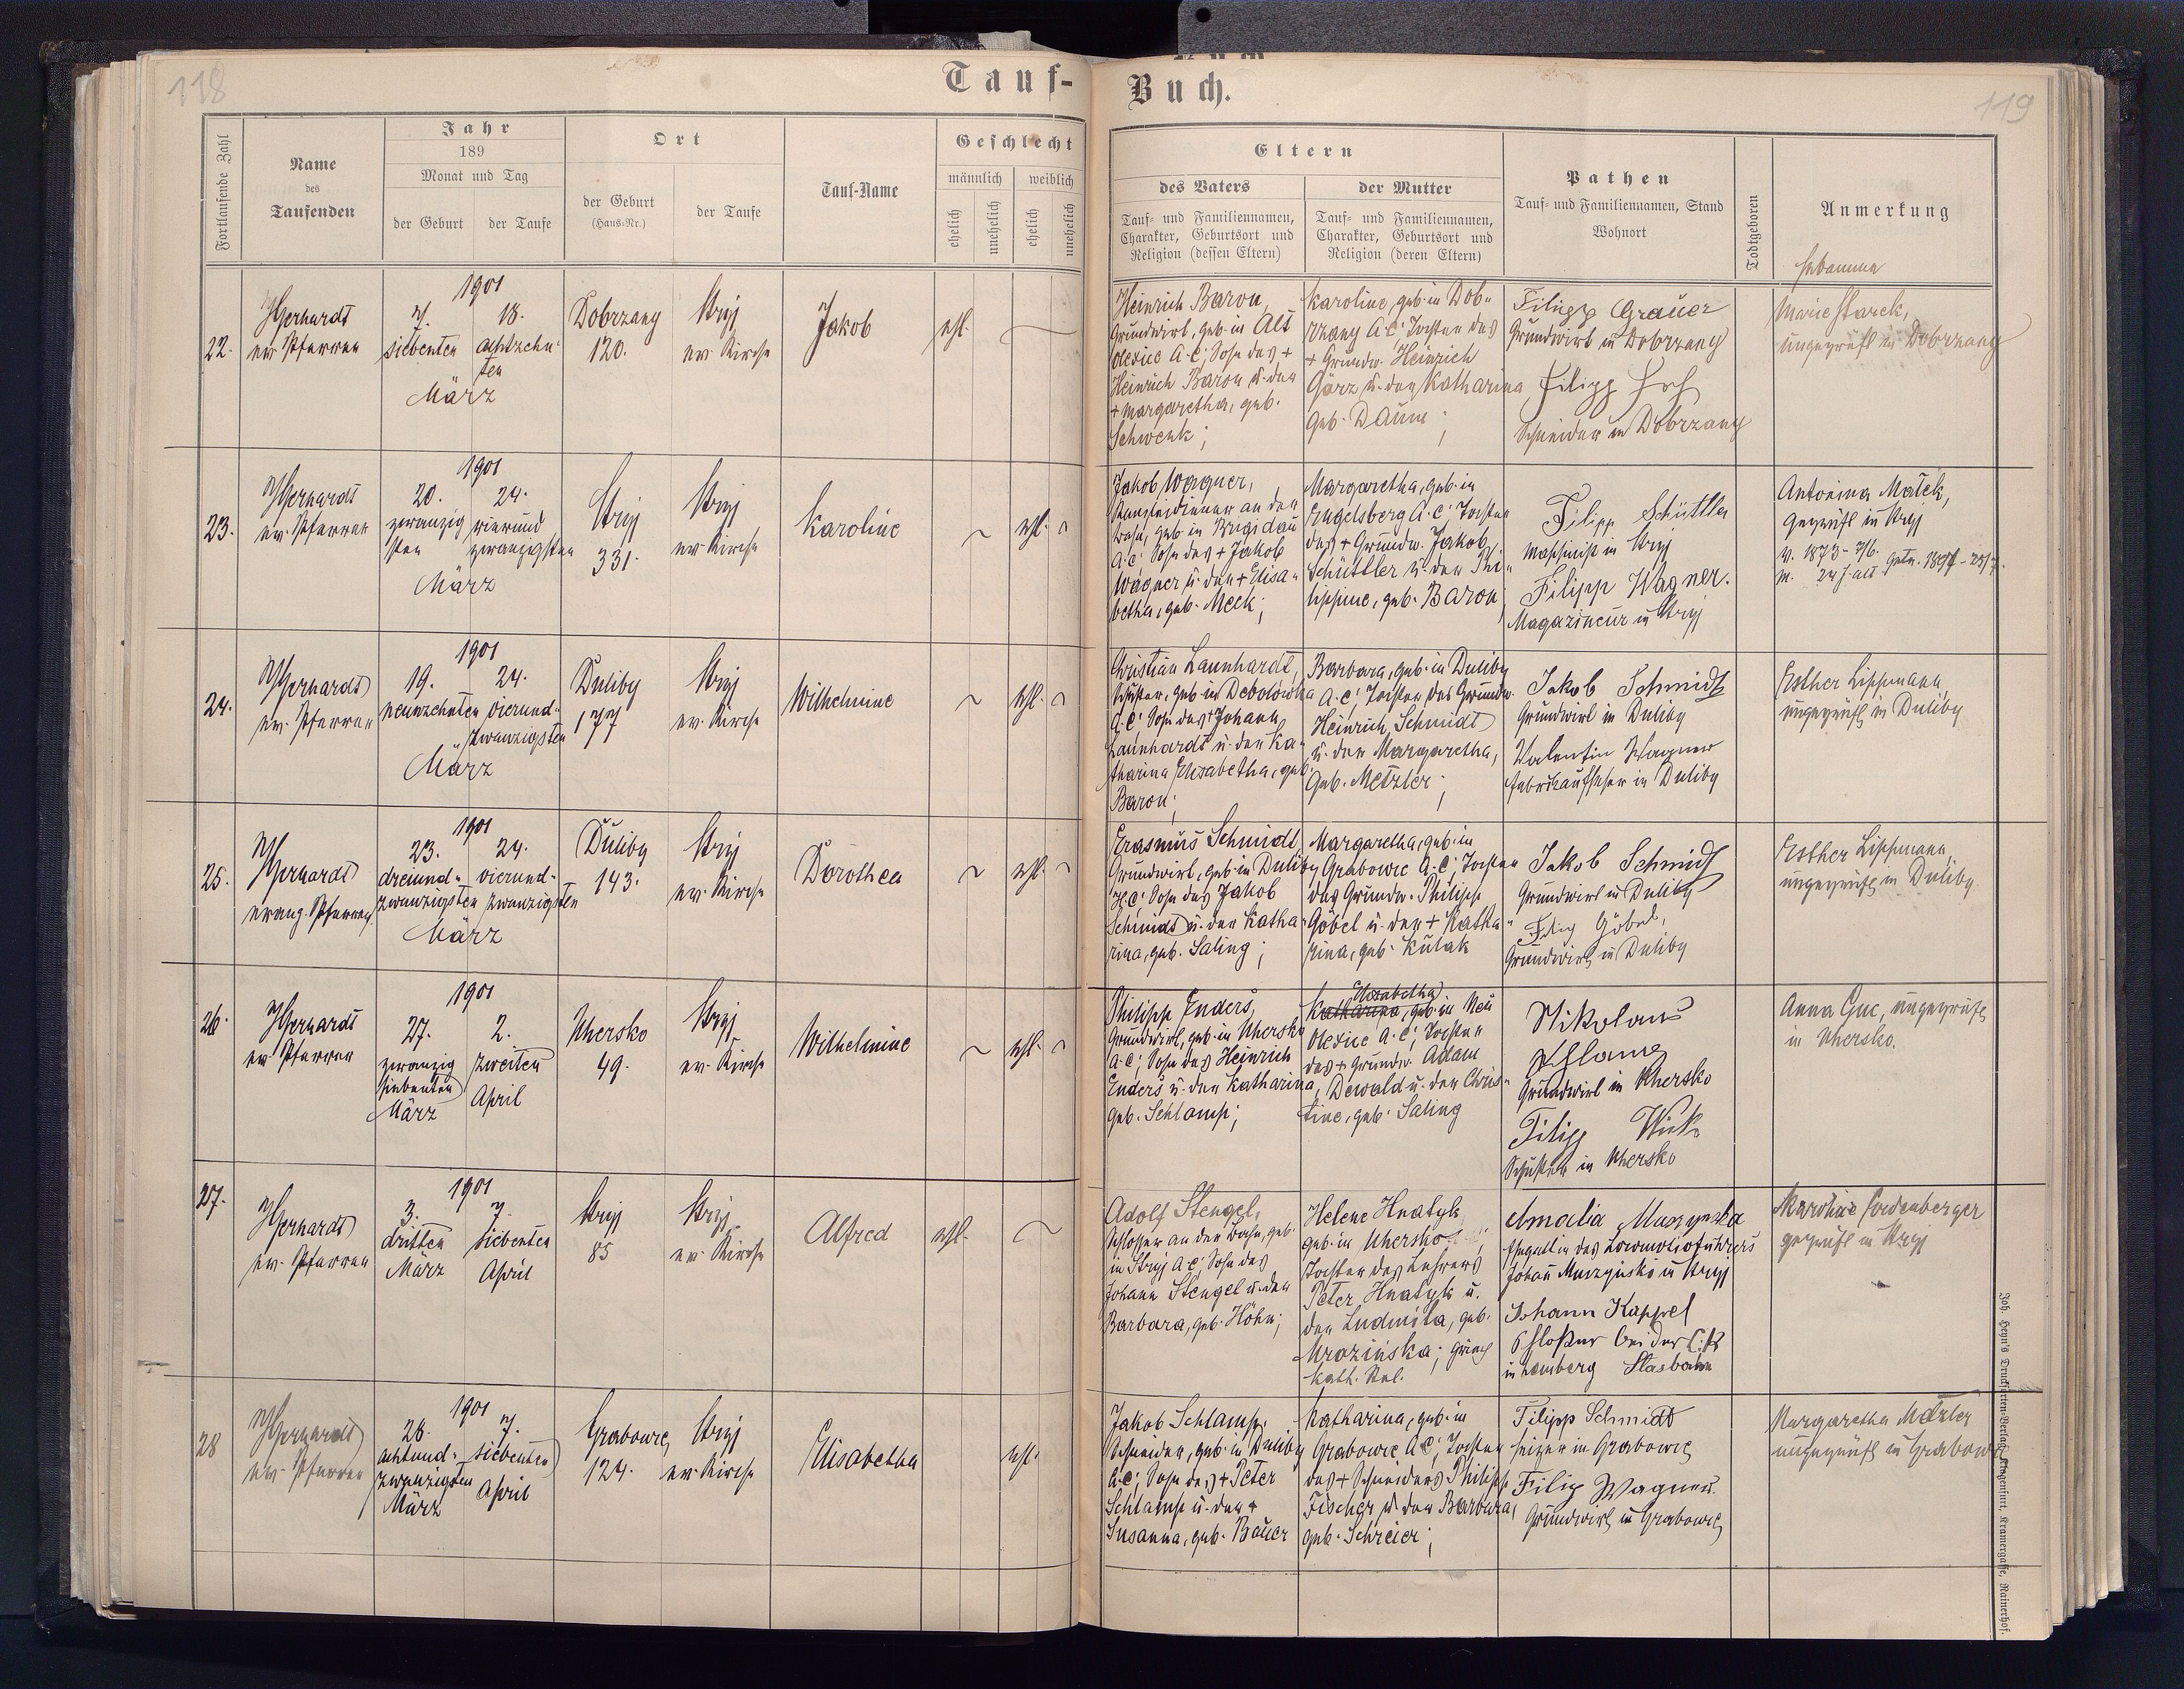 118
Tauf-
Buch.
119
Fortlaufende Zahl
Name
des
Taufenden
Jahr
189
Monat und Tag
der Geburt
der Taufe
Ort
der Geburt
(Haus-Nr.)
der Taufe
Tauf-Name
Geschlecht
männlich
weiblich
ehelich
unehelich
ehelich
unehelich
Eltern
des Vaters
Tauf- und Familiennamen,
Charakter, Geburtsort und
Religion (dessen Eltern)
der Mutter
Tauf- und Familiennamen,
Charakter, Geburtsort und
Religion (deren Eltern)
Pathen
Tauf- und Familiennamen, Stand
Wohnort
Todtgeboren
Anmerkung
Hebamme
22.
Gerhardt
ev. Pfarrer
1901
7.
siebenten
18.
achtzehn
ten
März
Dobrzany
120.
Stryj
ev. Kirche
Jakob
ehl.
Heinrich Baron,
Grundwirt, geb. in Alt
Olexice A.C; Sohn des +
Heinrich Baron u. der
+ Margaretha, geb.
Schwenk;
Karoline, geb. in Dob-
rzany A.C; Tochter des
+ Grundw. Heinrich
Görz u. der Katharina
geb. Daum;
Filipp Grauer
Grundwirt in Dobrzany
Filipp
Schneider in Dobrzany
Marie Starek,
ungeprüft in Dobrzany
23.
Gerhardt
ev. Pfarrer
1901
20.
zwanzig
sten
24.
vierund
zwanzigsten
März
Stryj
331.
Stryj
ev. Kirche
Karoline
ehl.
Jakob Wagner,
Kanzleidiener an der
Bahn, geb. in Brigidau
A.C; Sohn des + Jakob
Wagner u. der + Elisa-
betha, geb. Meck;
Margaretha, geb. in
Engelsberg A.C; Tochter
des + Grundw. Jakob
Schüttler u. der Phi-
lippine, geb. Baron
Filipp Schüttler
Maschinist in Stryj
Filipp Wagner.
Magazineur in Stryj
Antonina Malek,
geprüft in Stryj
v. 1873 - 7/6.
24.
Gerhardt
ev. Pfarrer
1901
19.
neunzehnten
24.
vierund-
zwanzigsten
März
Duliby
177
Stryj
ev. Kirche
Wilhelmine
ehl.
Christian Launhardt,
Schuster, geb. in Debolówka
A.C; Sohn des + Johann
Launhardt u. der Ka-
tharina Elisabetha, geb.
Baron;
Barbara, geb. in Duliby
A.C; Tochter des Grundw.
Heinrich Schmidt
u. der Margaretha,
geb. Metzler;
Jakob Schmidt
Grundwirt in Duliby
Valentin Wagner
Fabrikaufseher in Duliby
Esther Lippmann,
ungeprüft in Duliby
25.
Gerhardt
evang. Pfarrer
1901
23.
dreiund-
zwanzigsten
24.
vierund-
zwanzigsten
März
Duliby
143.
Stryj
ev. Kirche
Dorothea
ehl.
Erasmus Schmidt,
Grundwirt, geb. in Duliby
H.C; Sohn des Jakob
Schmidt u. der Katha-
rina, geb. Saling;
Margaretha, geb. in
Grabowce A.C; Tochter
des Grundw. Philipp
Göbel u. der + Katha-
rina, geb. Kulak
Jakob Schmidt
Grundwirt in Duliby
Filip Göbel,
Grundwirt in Duliby
Esther Lippmann,
ungeprüft in Duliby
26.
Gerhardt
ev. Pfarrer
1901
27.
zwanzig
siebenten
März
2.
zweiten
April
Uhersko
49.
Stryj
ev. Kirche
Wilhelmine
ehl.
Philipp Enders,
Grundwirt, geb. in Uhersko
A.C; Sohn des Heinrich
Enders u. der Katharina,
geb. Schlamp;
Elisabetha
Katharina, geb. in Neu
Olexice A.C; Tochter
des + Grundw. Adam
Dewald u. der Chris-
tine, geb. Saling
Nikolaus
Schlamp
Grundwirt in Uhersko
Filipp Wirk
Schuster in Uhersko
Anna Guc, ungeprüft
in Uhersko.
27.
Gerhardt
ev. Pfarrer
1901
3.
dritten
März
7.
siebenten
April
Stryj
85
Stryj
ev. Kirche
Alfred
ehl.
Adolf Stengel,
Schlosser an der Bahn, geb.
in Stryj A.C; Sohn des
Johann Stengel u. der
Barbara, geb. Höhn;
Helene Hnatyk
geb. in Uhersko
Tochter des Lehrers
Peter Hnatyk u.
der Ludmila, geb.
Mrozińska; griech
kath. Rel.
Amalia Muszyńska
Ehegattin des Locomotivführers
Johann Muszyński in Stryj
Johann Kappel
Schlosser bei der
in Lemberg Stasbahn
Karoline Fordenberger
geprüft in Stryj
28
Gerhardt
ev. Pfarrer
1901
28.
achtund-
zwanzigsten
März
7.
siebenten
April
Grabowce
124.
Stryj
ev. Kirche
Elisabetha
ehl.
Jakob Schlamp,
Schneider, geb. in Duliby
A.C; Sohn des + Peter
Schlamp u. der +
Susanna, geb. Bauer
Katharina, geb. in
Grabowce A.C; Tochter
des + Schneiders Philipp
Fischer u. der Barbara,
geb. Schreier;
Filipp Schmidt
Heizer in Grabowce
Filip Wagner
Grundwirt in Grabowce
Margaretha Metzler
ungeprüft in Grabowce
Joh. Heyn's Drucksorten-Verlag, Klagenfurt, Kramergasse, Rainerhof.